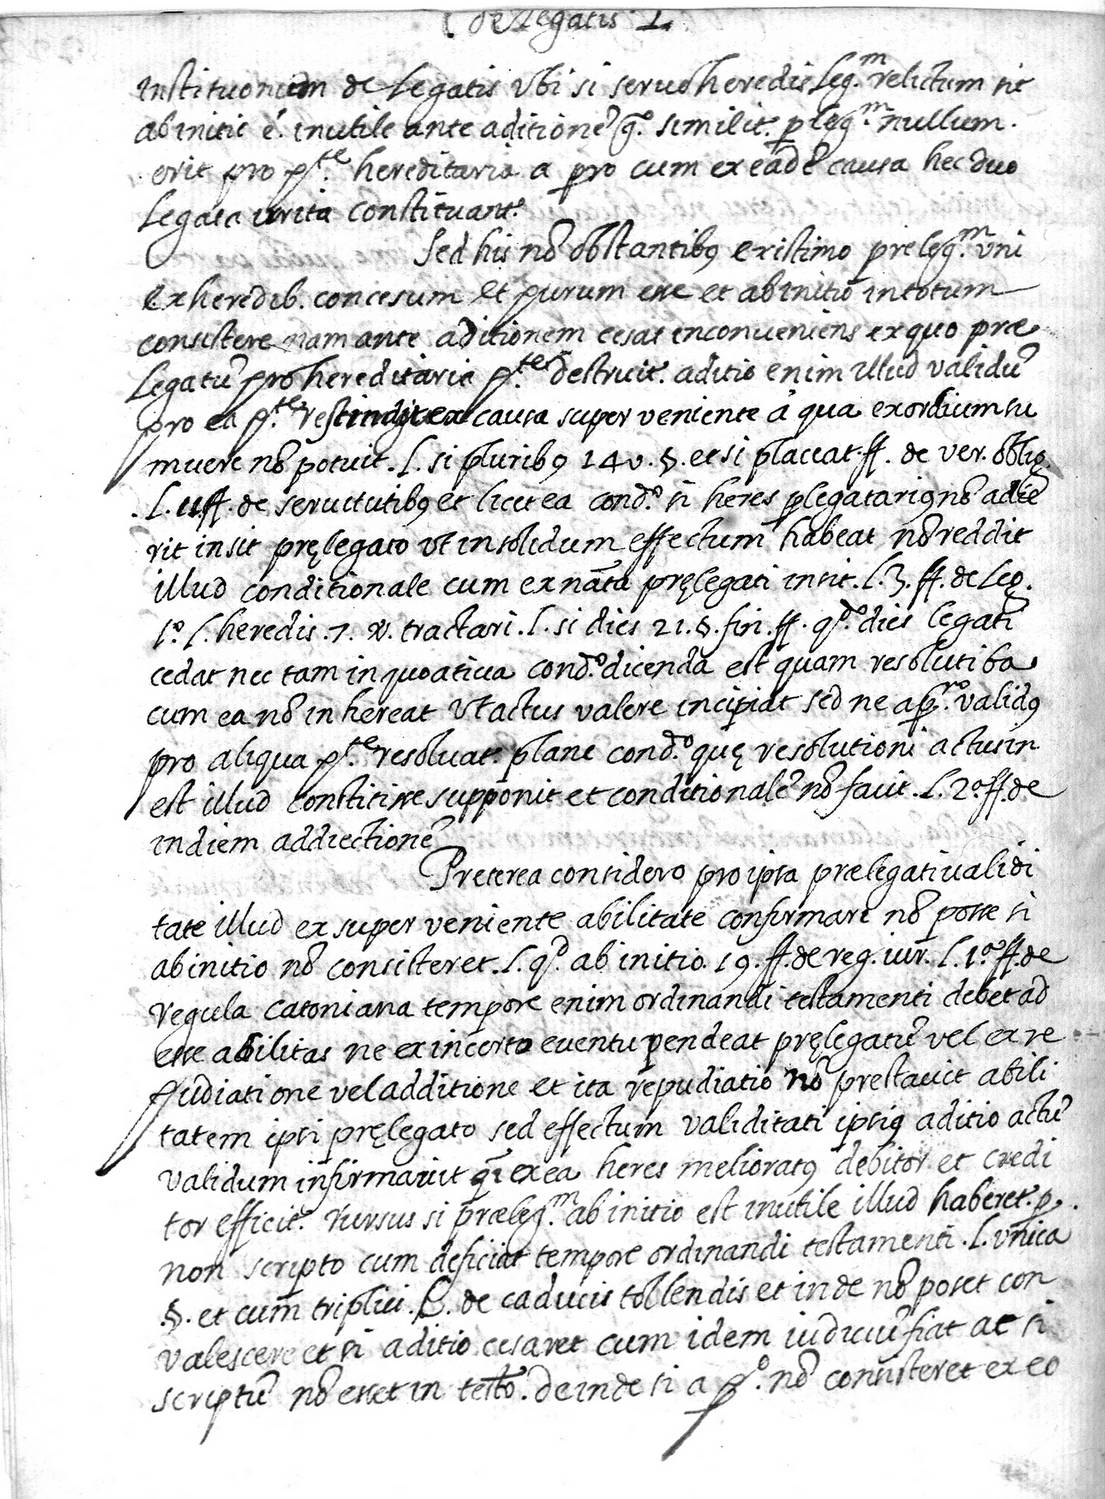 de Legatis 1.
Instituonum de Legatis Vbi si servo heredis leg.m relictum sit
ab initio é. inutile ante aditionẽ g.o similit. p̃leg.m nullum.
erit pro p.te hereditaria a pro cum ex eãdẽ causa hec duo
Legata irrita constituant.r
Sed his nõ obstantibꝯ existimo preleg.m vni
ex heredib. concesum et purum esse et ab initio in totum
consistere nam ante aditionem cesat inconveniens ex quo præ
Legatũ pro hereditaria p.te destruit. aditio enim illud validũ
pro ea p.te rescindit ex causa super veniente á qua exordium su
muere nõ potuit. l. si pluribꝯ 140. §. et si placeat. ff. de ver. oblig.
l. 11 ff. de servitutibꝯ et licet ea cond.o si heres p̃legatariꝯ nõ adie
rit insit pręlegato vt in solidum effectum habeat nõ reddit
illud conditionale cum ex nãta pręlegati insit. l. 3. ff. de Leg.
1.o l. heredis. 7. §. tractari. l. si dies 21. §. fin. ff. q̃do dies legati
cedat nec tam inquoativa cond.o dicenda est quam resolutiba
cum ea nõ inhereat Vt actus valere incipiat sed ne a p.ro validꝯ
pro aliqua p.te resoluat. plane cond.o quę resolutioni actus in
est illud constitisse supponit et conditionalẽ nõ facit. l. 2.o ff. de
indiem addiectionẽ
Preterea considero pro ipsa prælegati validi
tate illud ex super veniente abilitate confirmari nõ posse si
ab initio nõ consisteret. l. q̃d ab initio. 19. ff. de reg. iur. l. 1.o ff. de
regula catoniana tempore enim ordinandi testamenti debet ad
esse abilitas ne ex incerto eventu pendeat pręlegatũ vel ex re
pudiatione vel additione et ita repudiatio nõ prestavit abili
tatem ipsi pręlegato sed effectum validitati ipsiꝯ aditio actũ
validum infirmavit q̃ ex ea heres melioratꝯ debitor et credi
tor efficit.r rursus si præleg.m ab initio est inutile illud haberet. p.
non scripto cum deficiat tempore ordinandi testamenti. l. vnica
§. et cum triplici. C. de caducis tollendis et inde nõ poset con
valescere et si aditio cesaret cum idem iudiciũ fiat ac si
scriptũ nõ esset in testo. deinde si a p.o nõ consisteret ex eo